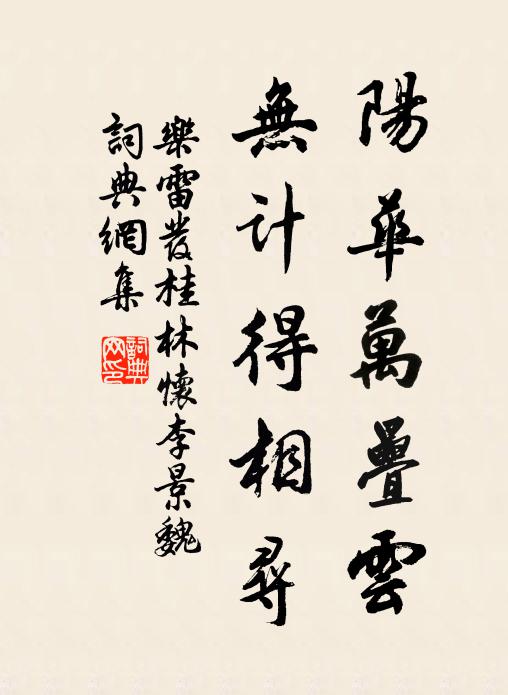 陽華萬疊雲
無計得相尋
樂雷發桂林懷李景魏
詞典網集
詞典網印